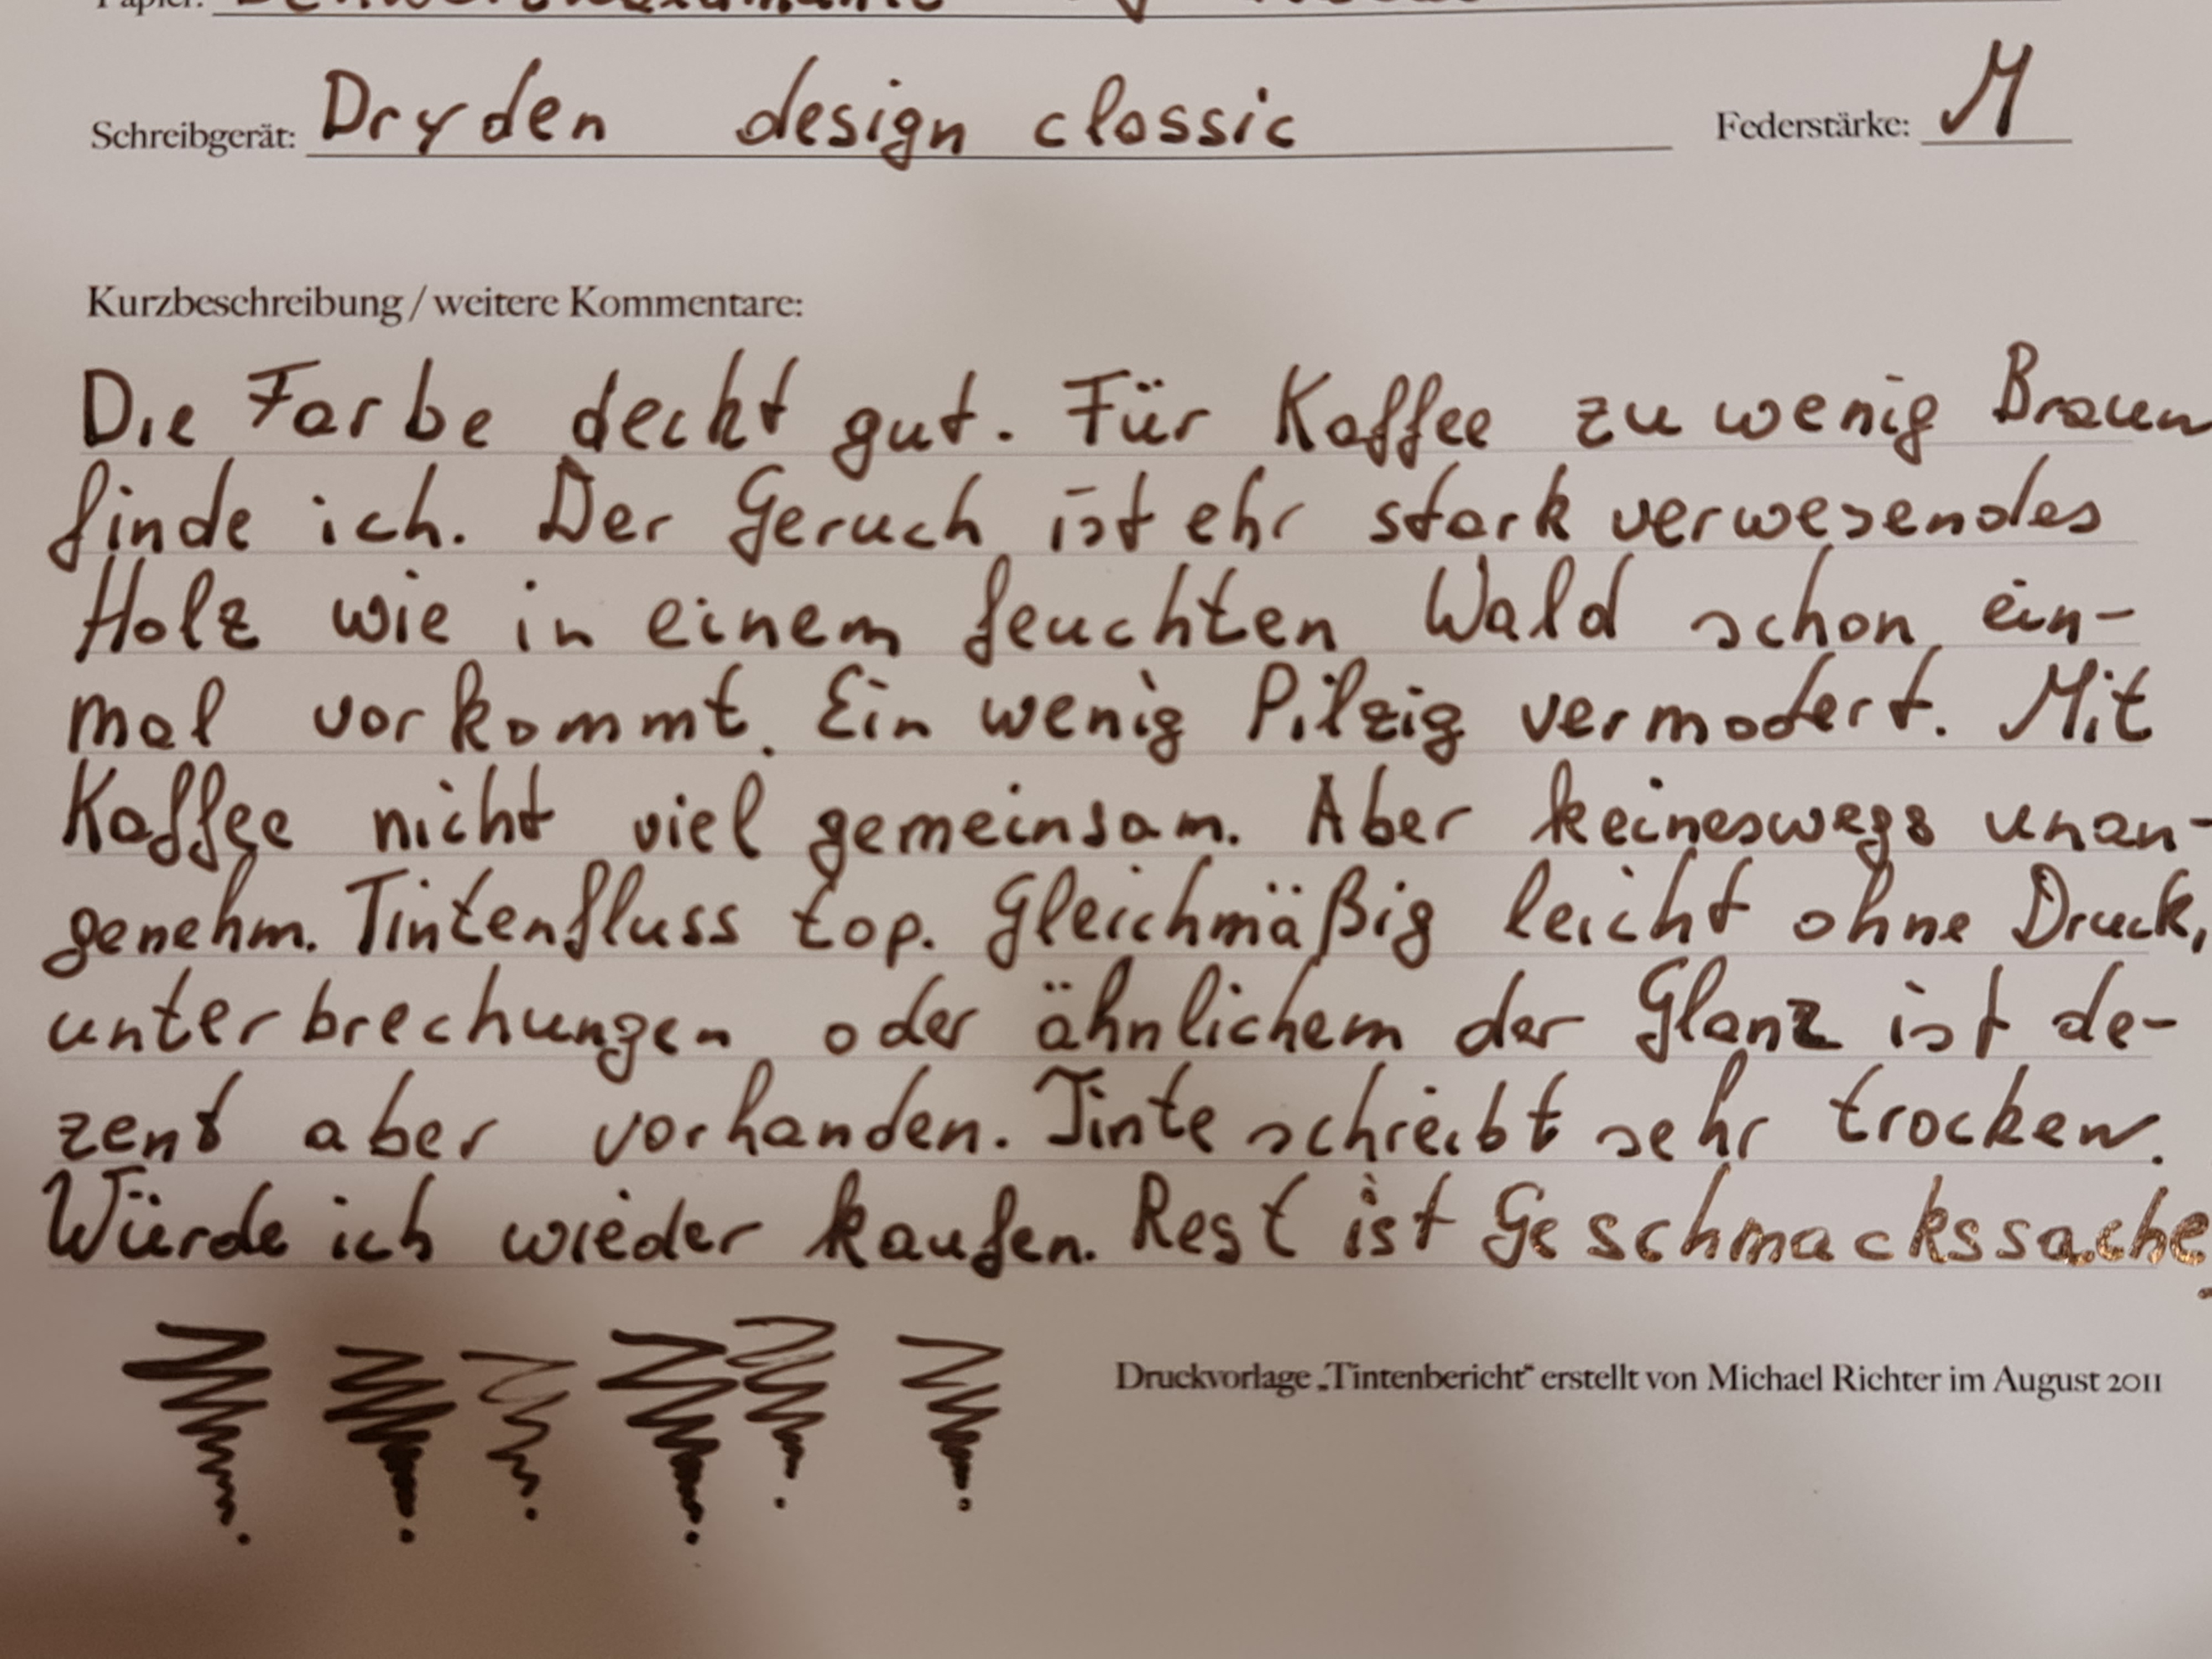 Papier:
Schreibgerät: Dryden design classic Federstärke: M
Kurzbeschreibung / weitere Kommentare:
Die Farbe deckt gut. Für Kaffee zu wenig Braun
finde ich. Der Geruch ist ehr stark verwesendes
Holz wie in einem feuchten Wald schon ein-
mal vorkommt. Ein wenig Pilzig vermodert. Mit
Kaffee nicht viel gemeinsam. Aber keineswegs unan-
genehm. Tintenfluss top. Gleichmäßig leicht ohne Druck,
unterbrechungen oder ähnlichem der Glanz ist de-
zent aber vorhanden. Tinte schreibt sehr trocken.
Würde ich wieder kaufen. Rest ist Geschmackssache.
Druckvorlage „Tintenbericht“ erstellt von Michael Richter im August 2011